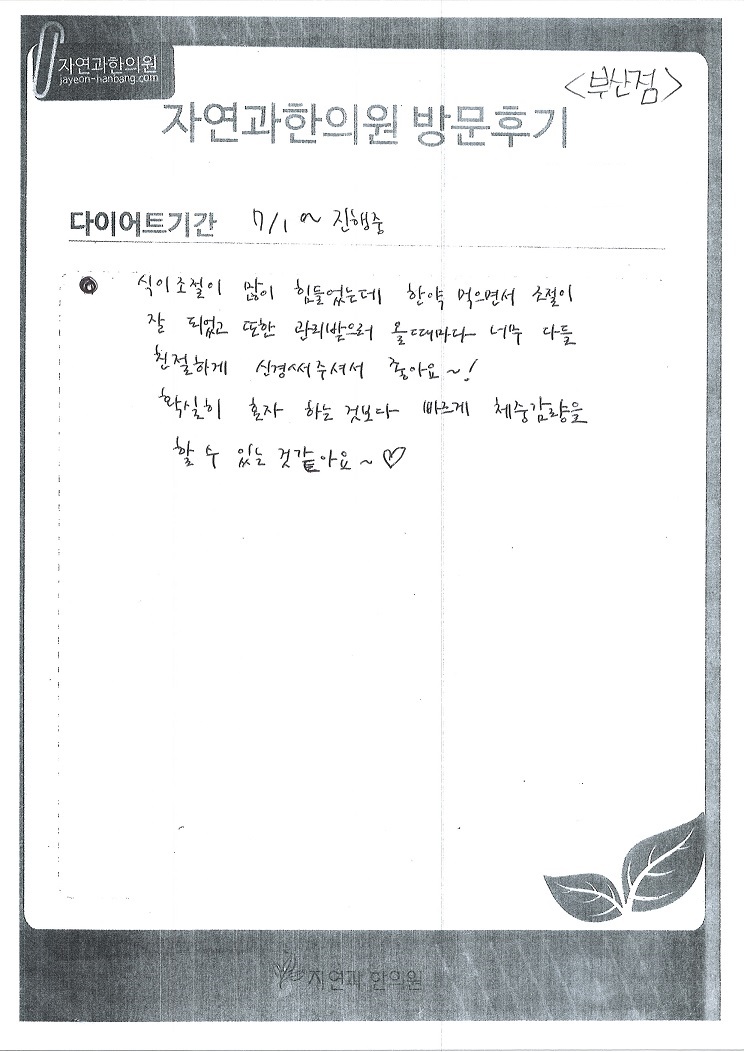 자연과한의원
jayeon-hanbang.com
<부산점>
자연과한의원 방문후기
다이어트기간 7/1 ~ 진행중
식이조절이 많이 힘들었는데 한약 먹으면서 조절이
잘 되었고 또한 관리받으러 올때마다 너무 다들
친절하게 신경써주셔서 좋아요~!
확실히 혼자 하는 것보다 빠르게 체중감량을
할 수 있는 것같아요~♡
자연과 한의원